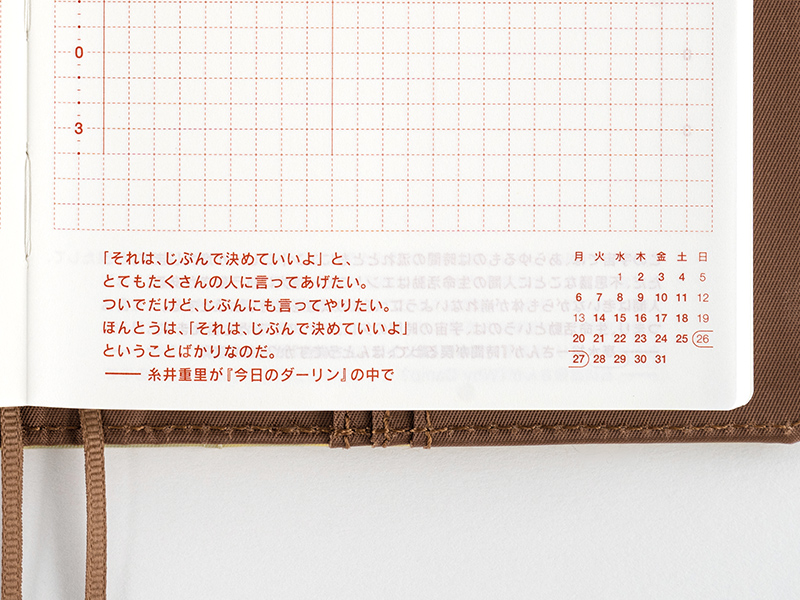 0
3
「それは、じぶんで決めていいよ」と、
とてもたくさんの人に言ってあげたい。
ついでだけど、じぶんにも言ってやりたい。
ほんとうは、「それは、じぶんで決めていいよ」
ということばかりなのだ。
―― 糸井重里が『今日のダーリン』の中で
月 火 水 木 金 土 日
1 2 3 4 5
6 7 8 9 10 11 12
13 14 15 16 17 18 19
20 21 22 23 24 25 26
27 28 29 30 31